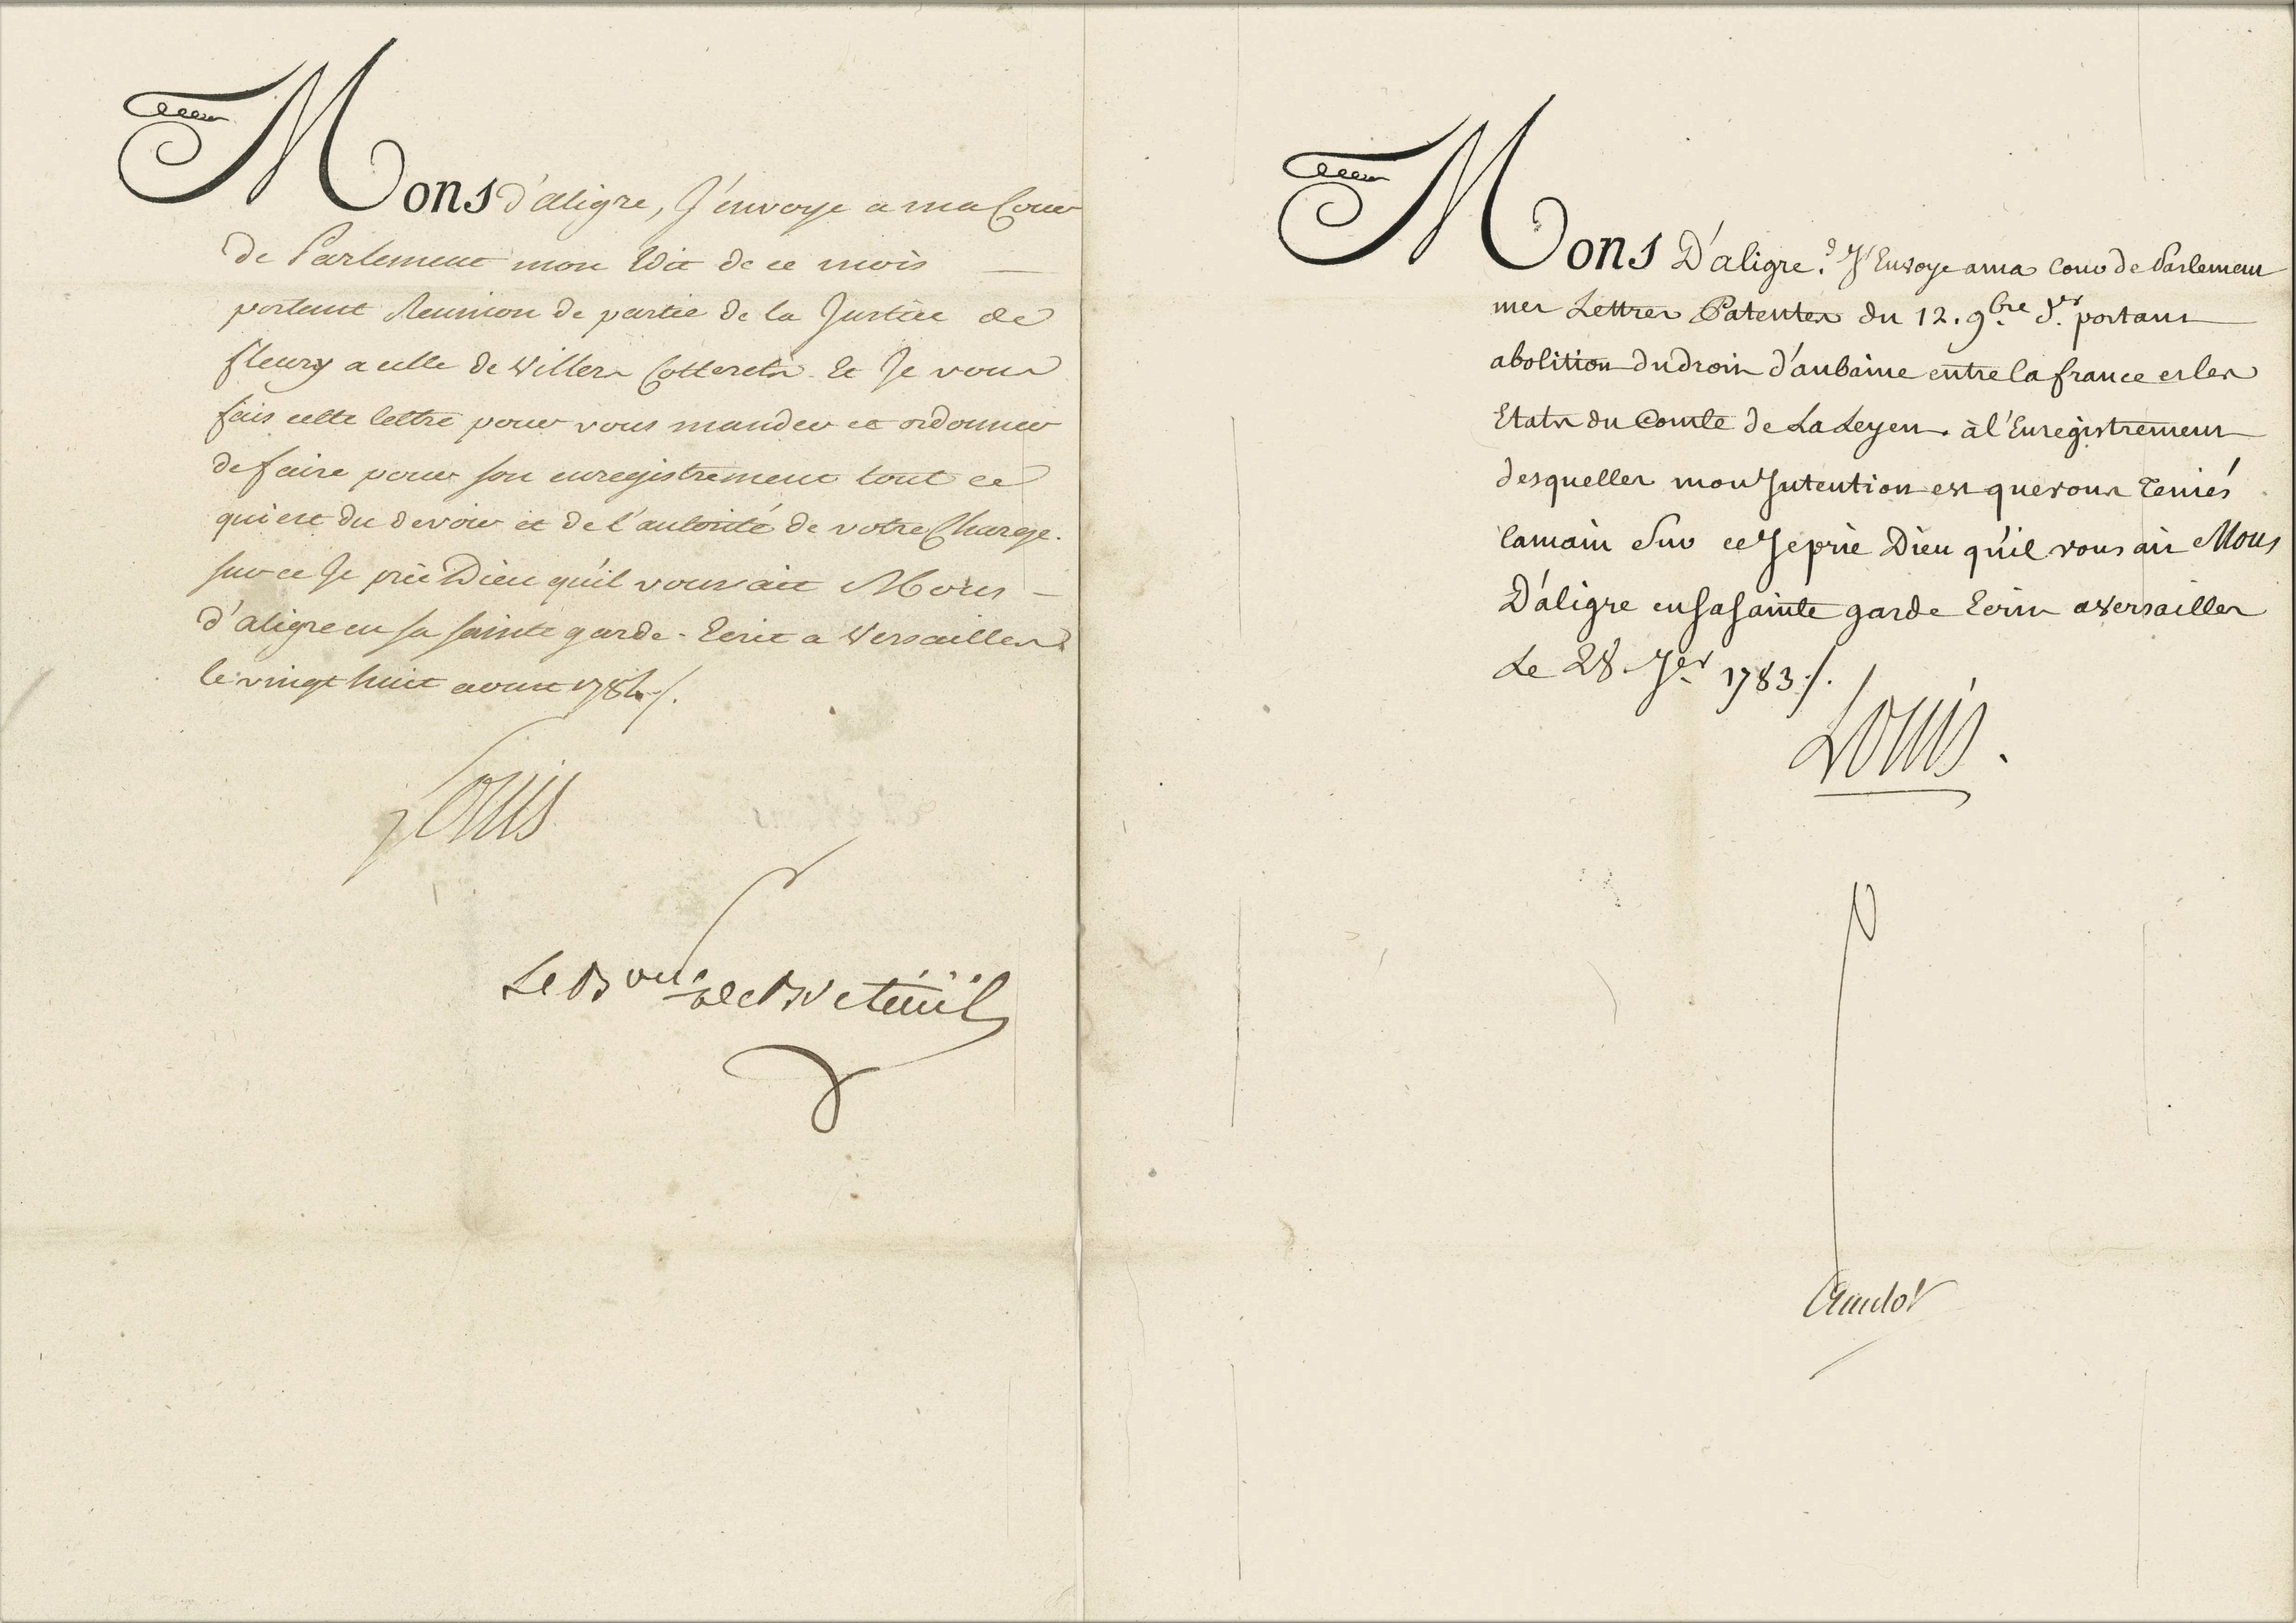 Mons d'aligre, J'envoye a ma Cour
de Parlement mon Edit de ce mois
portant Reunion de partie de la Justice de
fleury a celle de Villers Cotterets. Et Je vous
fais cette lettre pour vous mander et ordonner
de faire pour son enregistrement tout ce
qui est du devoir et de l'autorité de votre Charge.
sur ce Je prie Dieu qu'il vous ait Mons
d'aligre en sa sainte garde. Ecrit a Versailles
le vingt huit aoust 1784 /.
Louis
Le Bon de Breteüil
Mons D'aligre. J'Envoye a ma Cour de Parlement
mes Lettres Patentes du 12. 9.bre d.er portant
abolition du droit d'aubaine entre la france et les
Etats du Comte de La Leyen. à l'Enregistrement
desquelles mon Intention est que vous teniés
la main Sur ce Je prie Dieu qu'il vous ait Mons
D'aligre en sa sainte garde Ecrit a Versailles
Le 28 Jer 1783 /.
Louis.